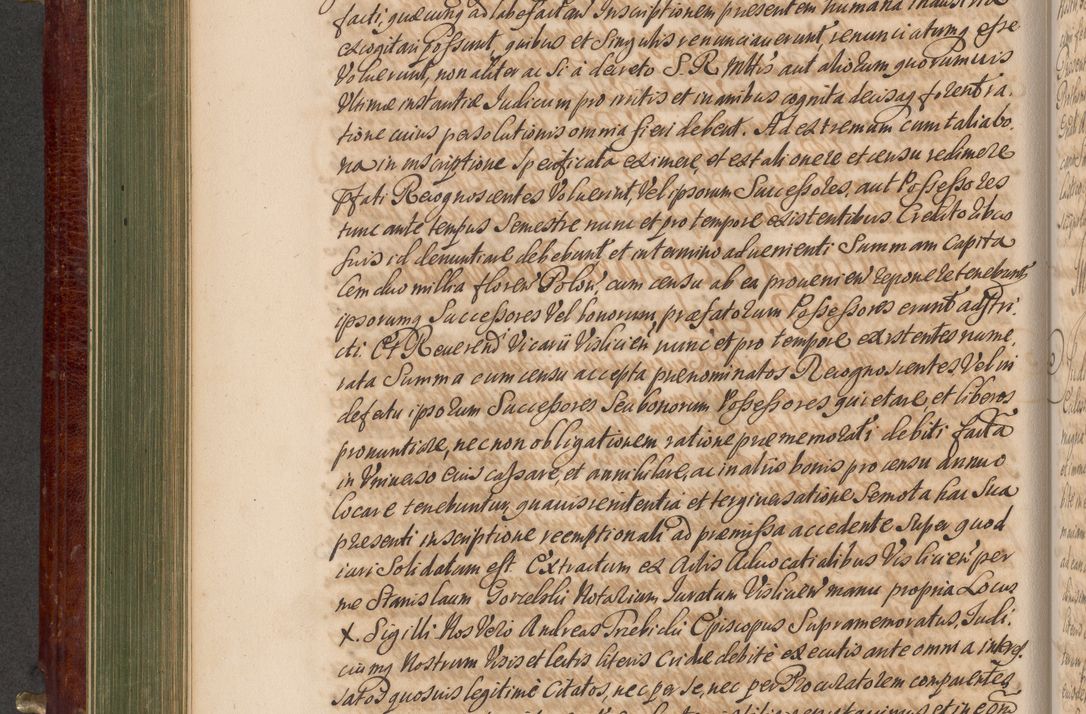 facti, quæcunq ad labefactand Inscriptionem præsentem humana industria
excogitari possunt, quibus et singulis renunciauerunt, renunciatumq esse
Voluerunt, non aliter ac si à decreto S. R. Mttis aut aliorum quorumuis
Vltimæ instantiæ Iudicum pro irritis et inanibus cognita decisaq forent ra-
tione cuius persolutionis omnia fieri debent. Ad extremum cum talia bo-
na in inscriptione specificata eximere, et est alionere et censu redimere
Pfati Recognoscentes Voluerint, Vel ipsorum Successores, aut Possessores
tunc ante tempus Semestre nunc et pro tempore existentibus Creditoribus
suis id denuntiare debebunt et in termino aduenienti Summam Capita-
lem duo millia floren Polon, cum censu ab ea prouenien reponere tenebunt
ipsorumq Successores Vel bonorum præfatorum Possessores erunt adstri-
cti. Et Reuerend Vicarii Vislicien nunc et pro tempore existentes nume-
rata Summa cum censu accepta prænominatos Recognoscentes, Vel in
defectu ipsorum Successores Seu bonorum Possessores quietare et liberos
pronuntiare, nec non obligationem ratione præmemorati debiti factã
in Vniuerso eius cassare, et annihilare, ac in aliis bonis pro censu annuo
locare tenebuntur, quauis renitentia et tergiuersatione Semota hac Sua
præsenti inscriptione reemptionali ad præmissa accedente Super quod
iari Solidatum est. Extractum ex Actis Aduocatialibus Vislicien per
me Stanislaum Gorcelskii Notarium Iuratum Vislicien manu propria Locus
X. Sigilli Nos Vero Andreas Trzebicki Episcopus Supramemoratus, Iudi-
ciumq Nostrum Visis et lectis literis Cridæ debitè executis ante omnia interes-
satos quosuis legitimè Citatos, nec per se, nec per Procuratorem comparentes